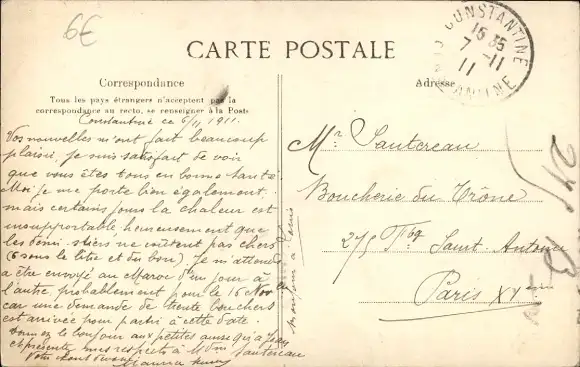 6€
CARTE POSTALE
CONSTANTINE
16 35
7 -11
11
CONSTANTINE
Correspondance
Adresse
Tous les pays étrangers n'acceptent pas la
correspondance au recto, se renseigner à la Poste
Constantine ce 6/11 1911.
Vos nouvelles m'ont fait beaucoup
plaisir, je suis satisfait de voir
que vous êtes tous en bonne santé
Moi je me porte bien également,
mais certains jours la chaleur est
insupportable, heureusement que
les demi-stiers ne coûtent pas chers
(6 sous le litre et du bon). Je m'attends
a être envoyé au Maroc d'un jour à
l'autre, probablement pour le 16 Nov
car une demande de trente bouchers
est arrivée pour partir à cette date.
Donnez le bonjour aux petites ainsi qu'a
et présente mes respects à Mme Sautereau
Votre
Maurice
bonjour à
Mr. Sautereau
Boucherie du Trône
275 Fbg Saint-Antoine
Paris